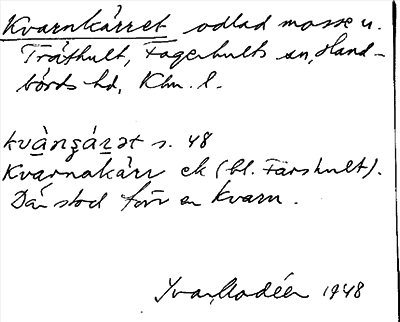 Kvarnkärret odlad mosse u.
Tråthult, Fagerhults sn, Hand-
börds hd, Klm. l.
kvànçárət s. 48
Kvarnakärr ek (bl. Färshult).
Där stod förr en kvarn.
Yvar Modéer 1948